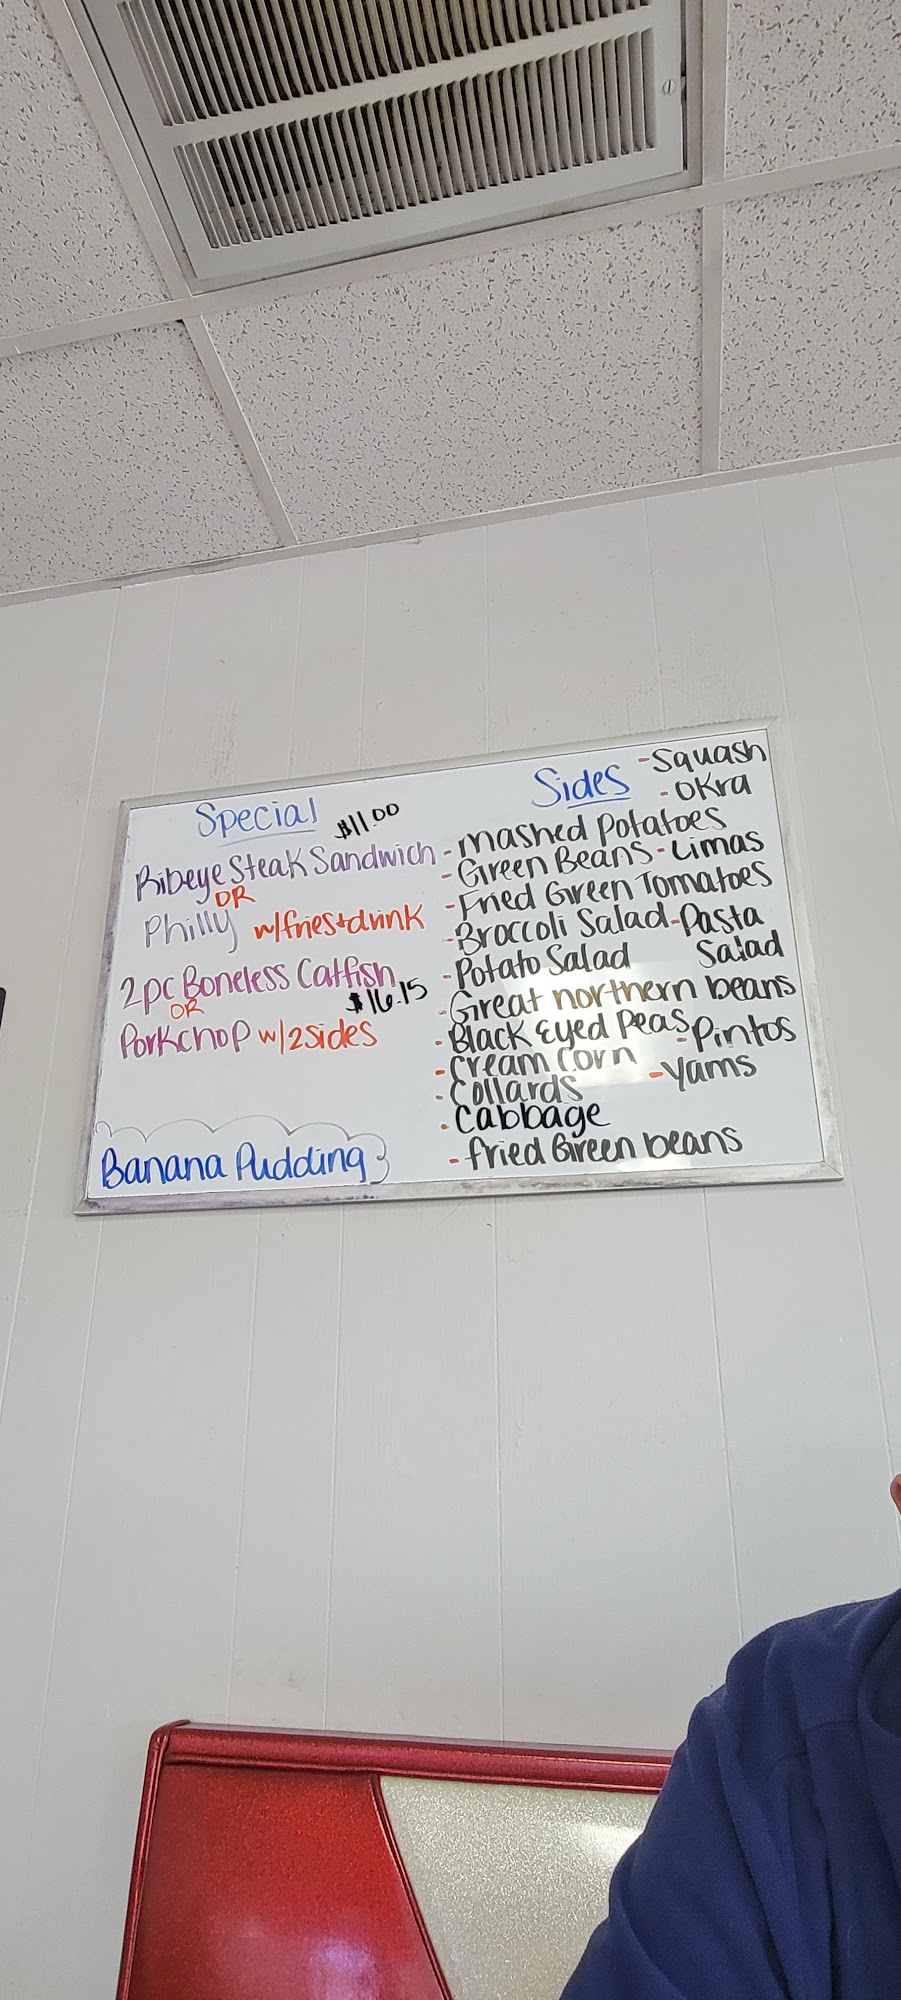 Special
$11.00
Ribeye Steak Sandwich
OR
Philly w/fries+drink
2pc Boneless Catfish
OR $16.15
Porkchop w/2sides
Banana Pudding
Sides
-Squash
-Okra
-Mashed Potatoes
-Green Beans -Limas
-Fried Green Tomatoes
-Broccoli Salad -Pasta Salad
-Potato Salad
-Great northern beans
-Black Eyed Peas -Pintos
-Cream Corn
-Yams
-Collards
-Cabbage
-fried Green beans